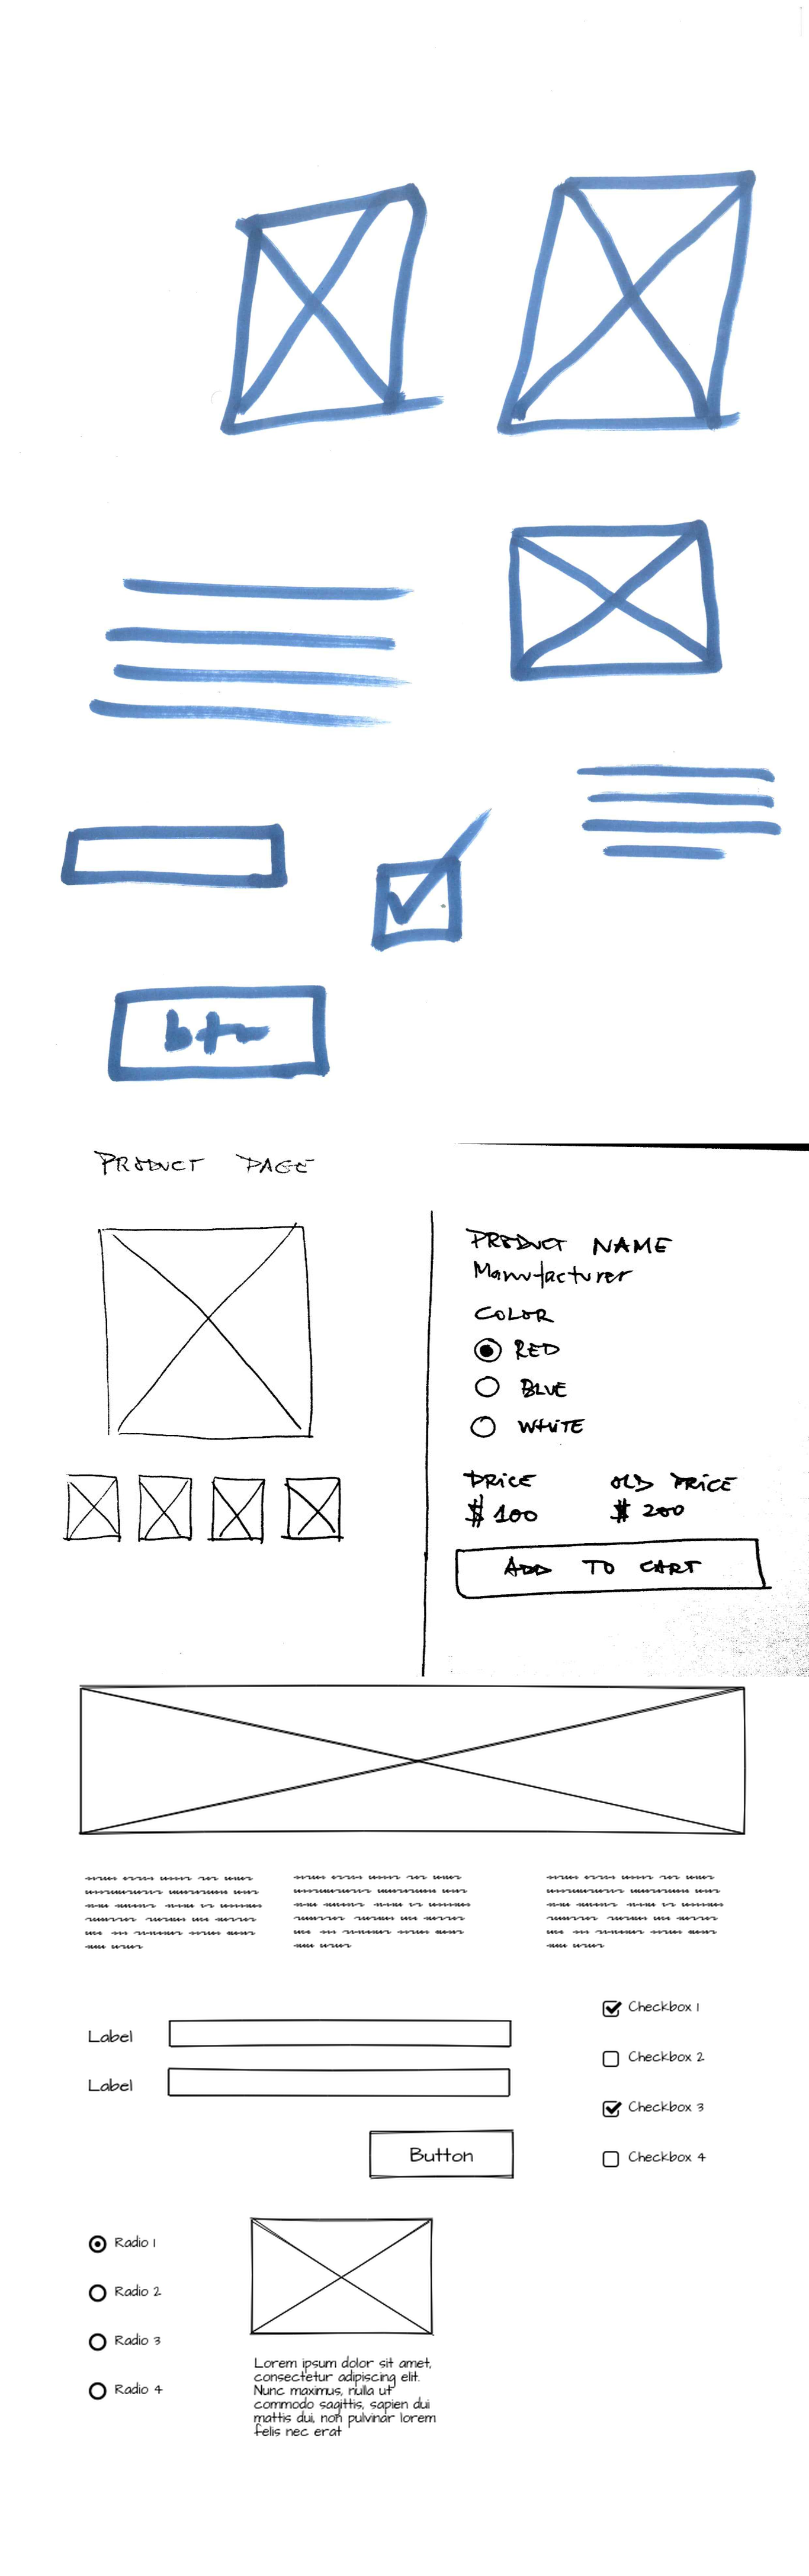 btn
PRODUCT PAGE
PRODUCT NAME
Manufacturer
COLOR
RED
BLUE
WHITE
PRICE OLD PRICE
$ 100 $ 200
ADD TO CART
Label
Label
Button
Checkbox 1
Checkbox 2
Checkbox 3
Checkbox 4
Radio 1
Radio 2
Radio 3
Radio 4
Lorem ipsum dolor sit amet,
consectetur adipiscing elit.
Nunc maximus, nulla ut
commodo sagittis, sapien dui
mattis dui, non pulvinar lorem
felis nec erat